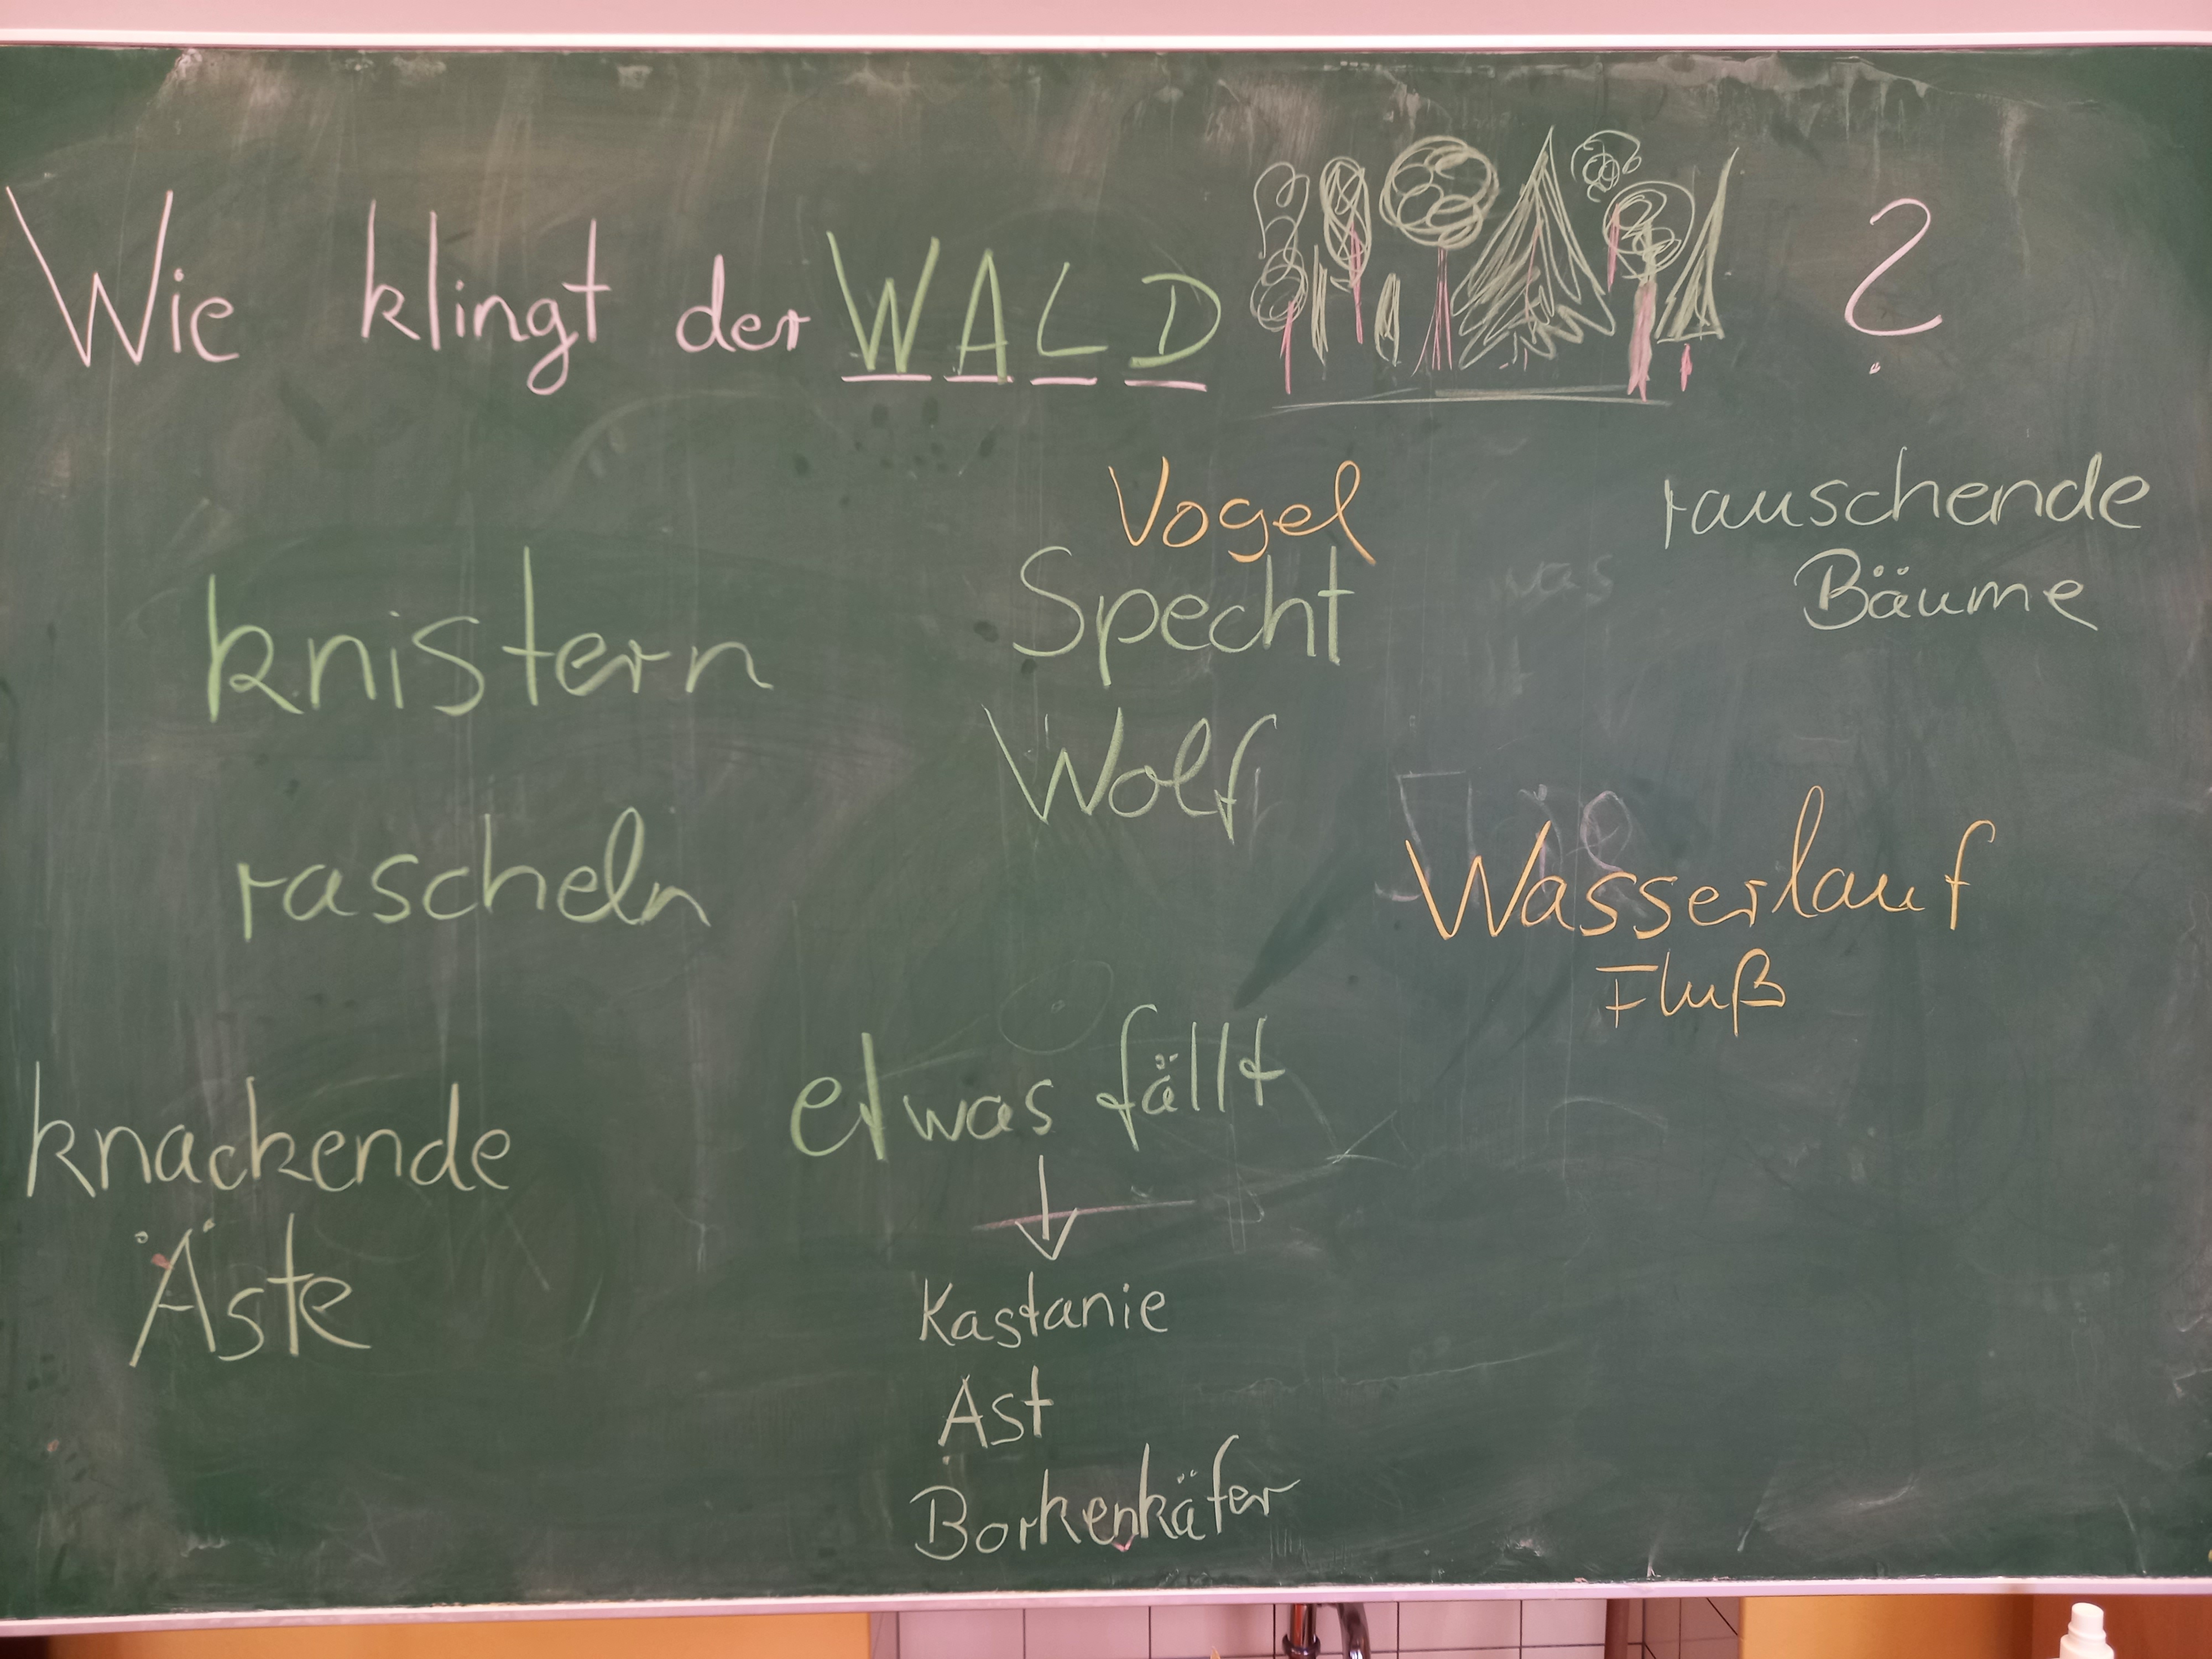 Wie klingt der WALD ?
Vogel
Specht
Wolf
rauschende
Bäume
knistern
rascheln
Wasserlauf
Fluß
knackende
Äste
etwas fällt
Kastanie
Ast
Borkenkäfer